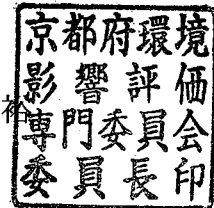 京都府環境
影響評価
裕
専門委員会
委員長印